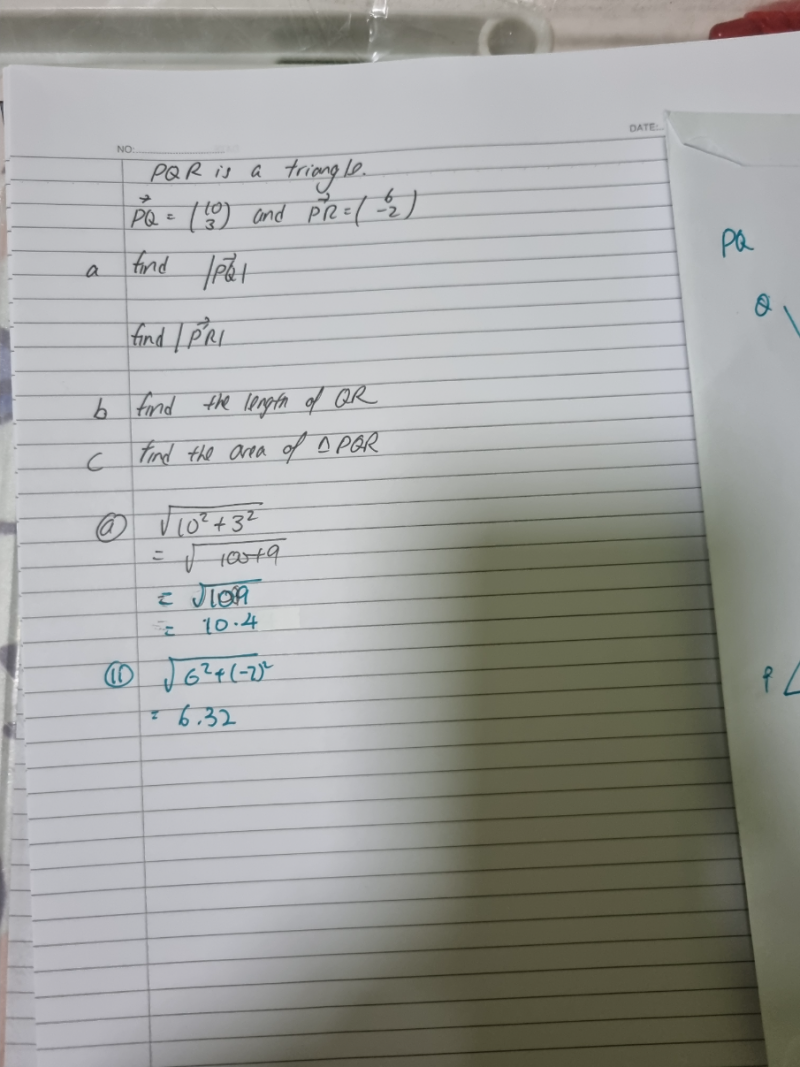 NO:
DATE:
PQR is a triangle.
PQ⃗ = (10 3) and PR⃗ = (6 -2)
a find |PQ⃗|
find |PR⃗|
b find the length of QR
c find the area of △PQR
ⓐ √10² + 3²
= √100+9
= √109
= 10.4
ⓘⓘ √6² + (-2)²
= 6.32
PQ
Q
P